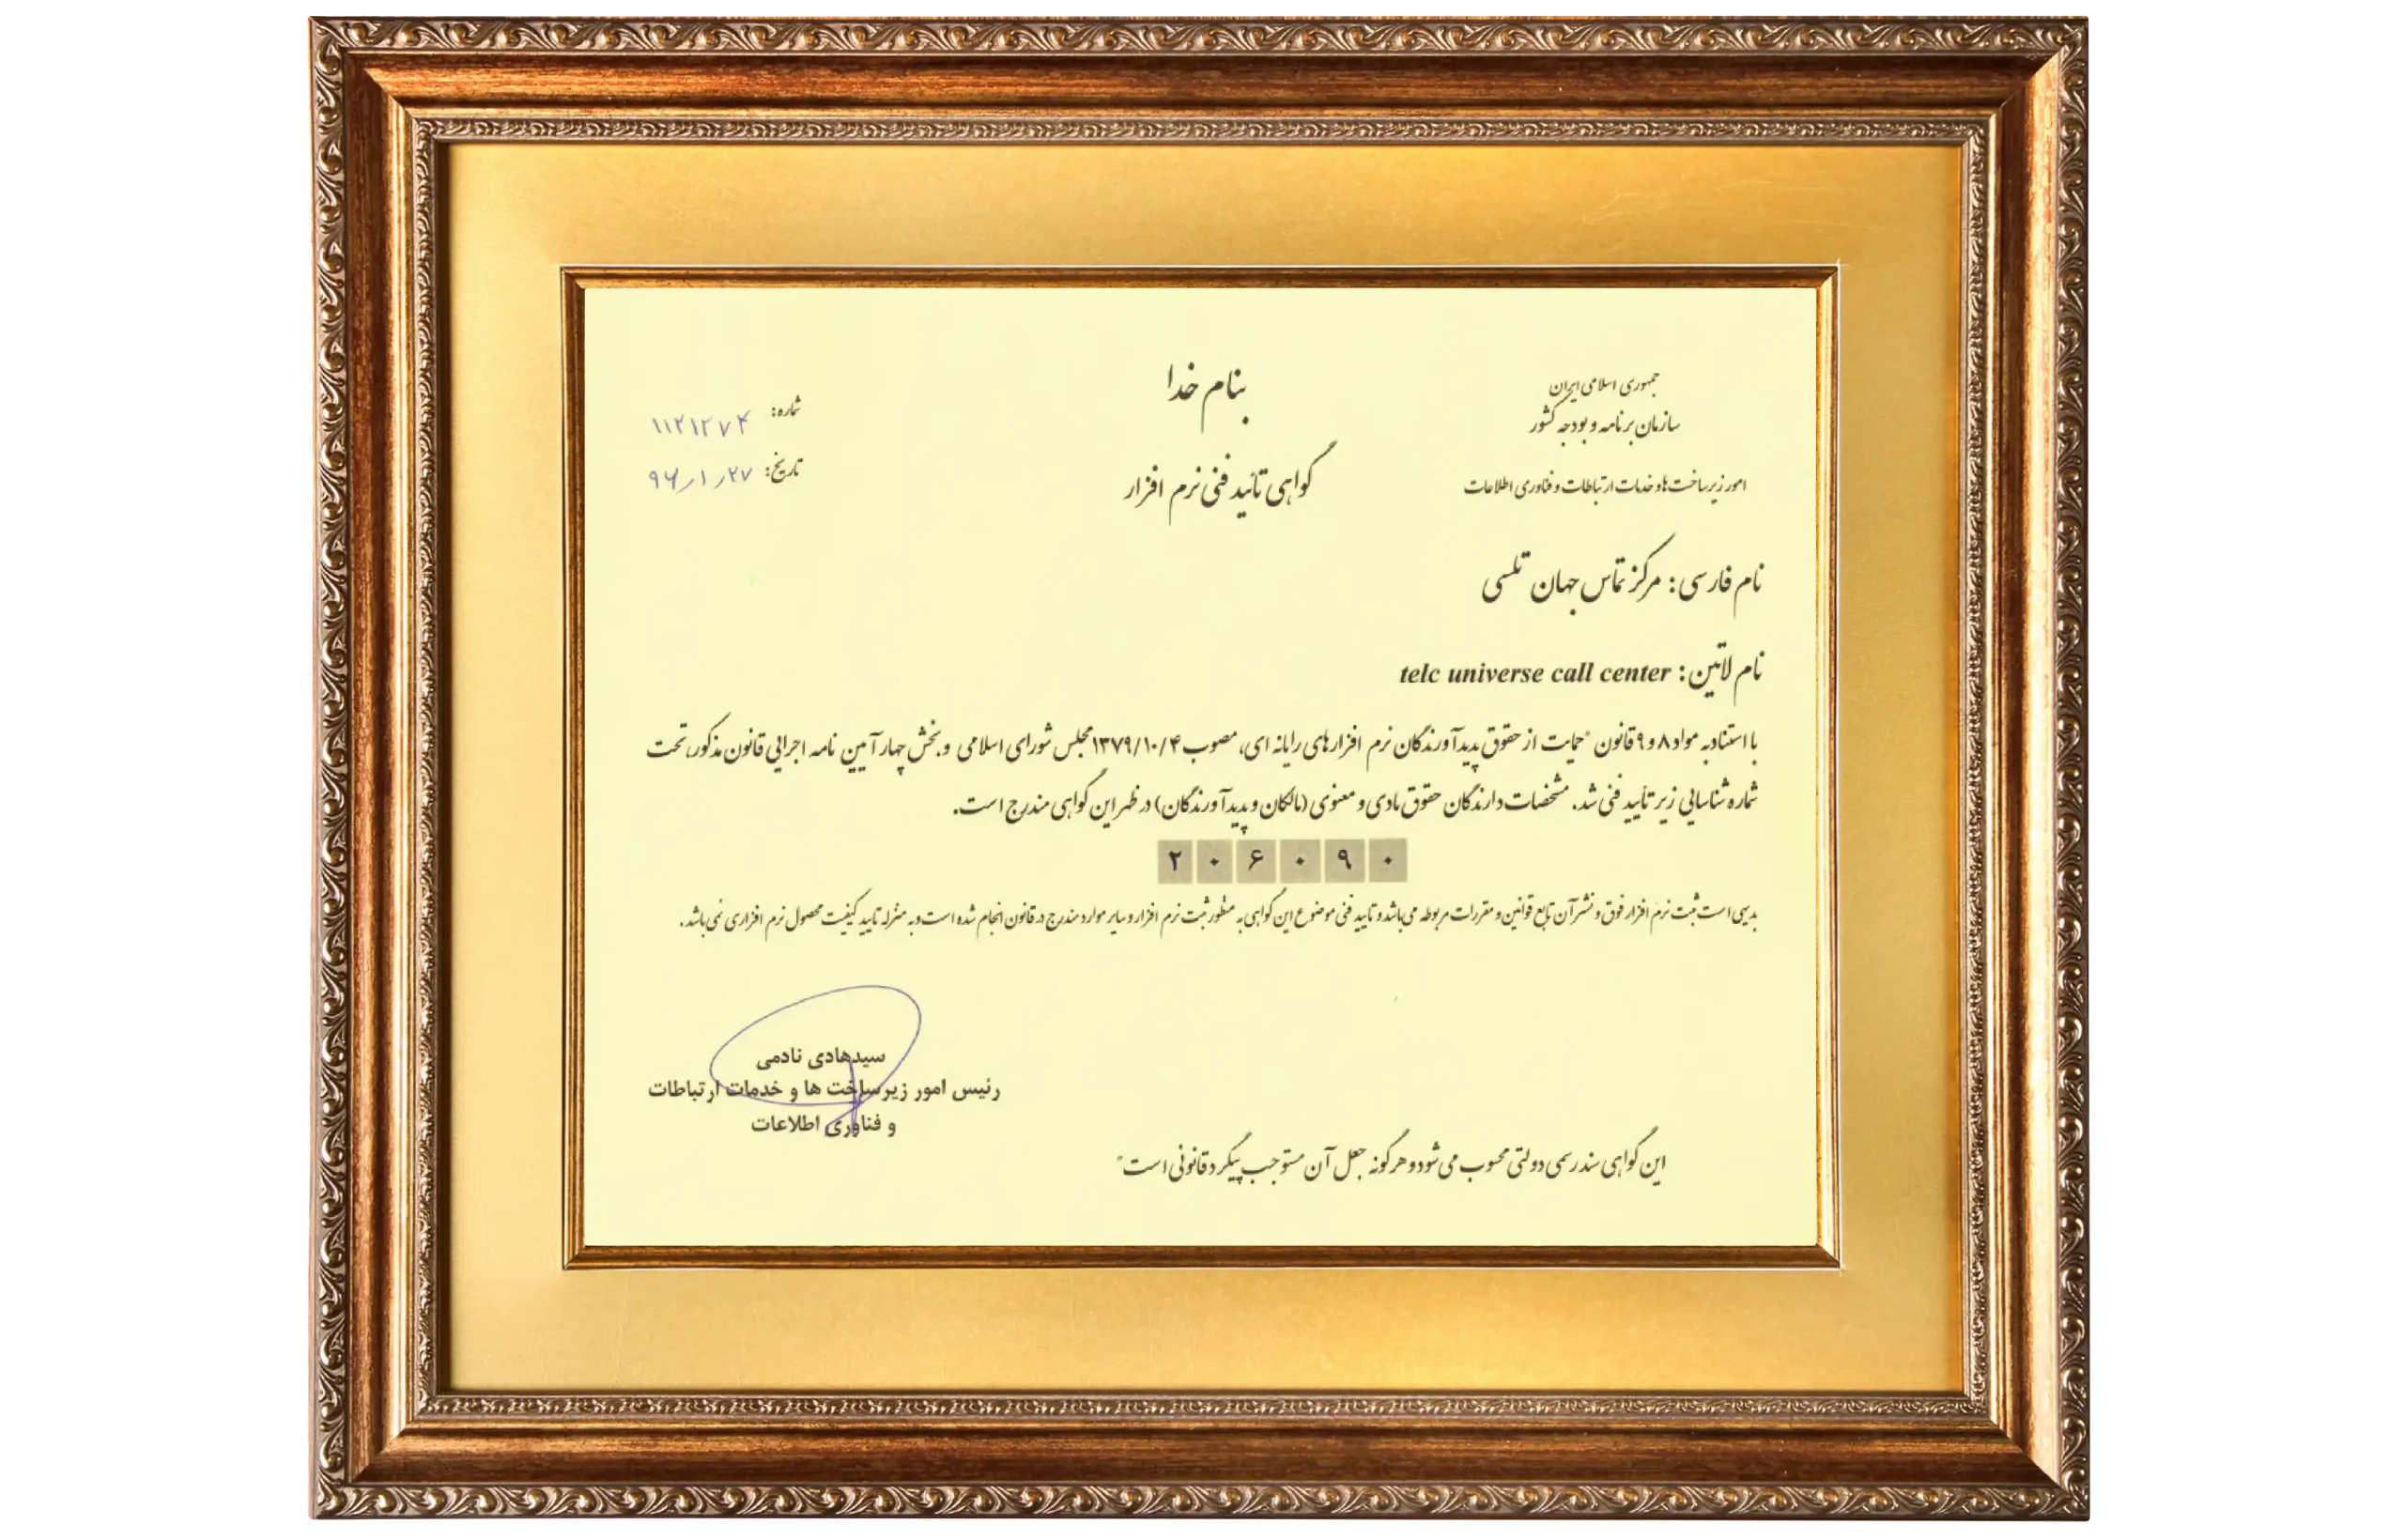 بنام خدا
جمهوری اسلامی ایران
سازمان برنامه و بودجه کشور
امور زیرساخت‌ها و خدمات ارتباطات و فناوری اطلاعات
گواهی تائید فنی نرم افزار
شماره: ۱۱۲۱۲۷۴
تاریخ: ۹۶/۱/۲۷
نام فارسی: مرکز تماس جهان تلسی
نام لاتین: telc universe call center
با استناد به مواد ۸ و ۹ قانون "حمایت از حقوق پدیدآورندگان نرم افزارهای رایانه ای، مصوب ۱۳۷۹/۱۰/۴ مجلس شورای اسلامی و بخش چهار آیین نامه اجرایی قانون مذکور، تحت
شماره شناسایی زیر تأیید فنی شد. مشخصات دارندگان حقوق مادی و معنوی (مالکان و پدیدآورندگان) در ظهر این گواهی مندرج است.
۲۰۶۰۹۰
بدیهی است ثبت نرم افزار فوق و نشر آن تابع قوانین و مقررات مربوطه می‌باشد و تایید فنی موضوع این گواهی به منظور ثبت نرم افزار و سایر موارد مندرج در قانون انجام شده است و به منزله تایید کیفیت محصول نرم افزاری نمی‌باشد.
سیدهادی نادمی
رئیس امور زیرساخت ها و خدمات ارتباطات
و فناوری اطلاعات
این گواهی سند رسمی دولتی محسوب می‌شود و هرگونه جعل آن مستوجب پیگرد قانونی است"